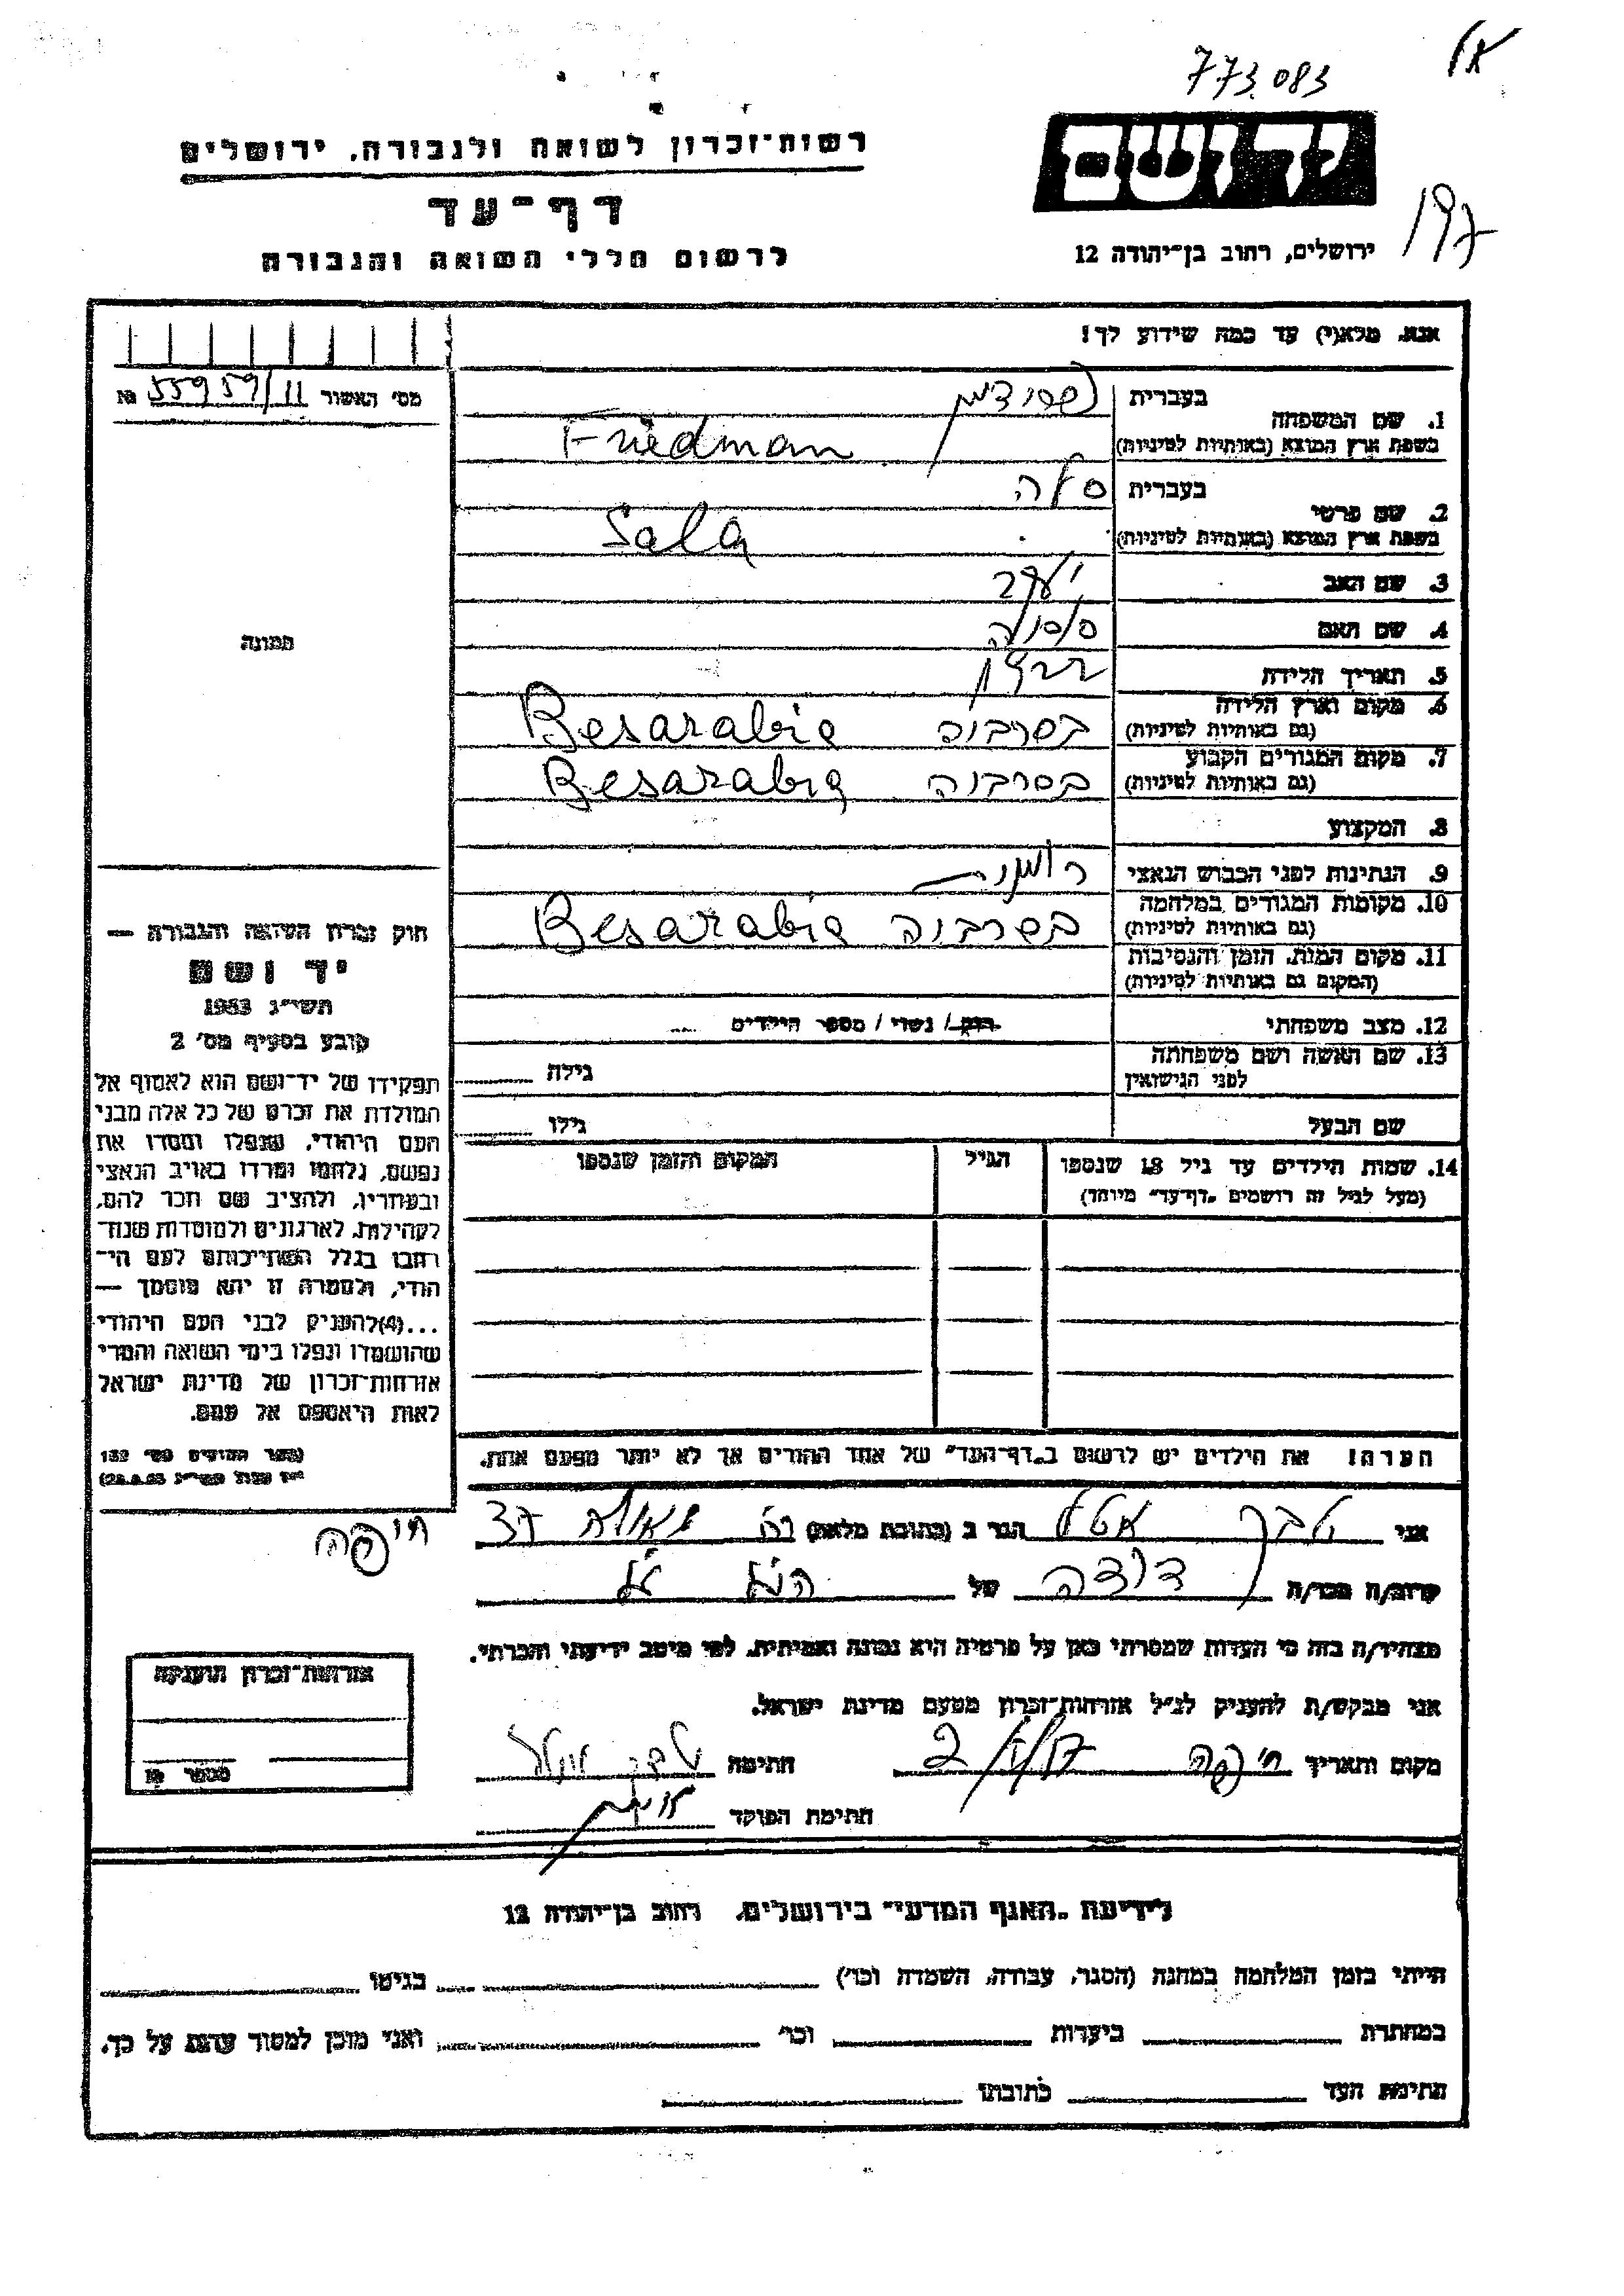 773.083
רשות־זכרון לשואה ולגבורה, ירושלים
יד ושם
דף־עד
לרשום חללי השואה והגבורה
ירושלים, רחוב בן־יהודה 12
197
אנא, מלא(י) עד כמה שידוע לך!
מס׳ האשור 55959/11 №
1. שם המשפחה
בעברית
בשפת ארץ המוצא (באותיות לטיניות) Friedman
2. שם פרטי
בעברית סלה
בשפת ארץ המוצא (באותיות לטיניות) Sala
3. שם האב יעקב
4. שם האם
5. תאריך הלידה
6. מקום וארץ הלידה
(גם באותיות לטיניות) בסרביה Besarabia
7. מקום המגורים הקבוע
(גם באותיות לטיניות) בסרביה Besarabia
8. המקצוע
9. הנתינות לפני הכבוש הנאצי
10. מקומות המגורים במלחמה
(גם באותיות לטיניות) בסרביה Besarabia
11. מקום המות, הזמן והנסיבות
(המקום גם באותיות לטיניות)
12. מצב משפחתי
רווק / נשוי / מספר הילדים
13. שם האשה ושם משפחתה
לפני הנישואין
גילה
שם הבעל
גילו
תמונה
חוק זכרון השואה והגבורה —
יד ושם
תשי״ג 1953
קובע בסעיף מס׳ 2
תפקידו של יד־ושם הוא לאסוף אל
המולדת את זכרם של כל אלה מבני
העם היהודי, שנפלו ומסרו את
נפשם, נלחמו ומרדו באויב הנאצי
ובעוזריו, ולהציב שם וזכר להם,
לקהילות, לארגונים ולמוסדות שנח־
רבו בגלל השתייכותם לעם הי־
הודי, ולמטרה זו יהא מוסמך —
...(4)להעניק לבני העם היהודי
שהושמדו ונפלו בימי השואה והמרי
אזרחות־זכרון של מדינת ישראל
לאות היאספם אל עמם.
(ספר החוקים מס׳ 132
14. שמות הילדים עד גיל 18 שנספו
(מעל לגיל זה רושמים „דף־עד״ מיוחד)
הגיל
המקום והזמן שנספו
הערה! את הילדים יש לרשום ב„דף־העד״ של אחד ההורים אך לא יותר מפעם אחת.
אני הגר ב (כתובת מלאה)
חיפה
קרוב/ה מכר/ה דודה של
מצהיר/ה בזה כי העדות שמסרתי כאן על פרטיה היא נכונה ואמיתית, לפי מיטב ידיעתי והכרתי.
אני מבקש/ת להעניק לנ״ל אזרחות־זכרון מטעם מדינת ישראל.
מקום ותאריך חיפה חתימה
חתימת הפוקד
אזרחות־זכרון הוענקה
מספר №
לידיעת „האגף המדעי״ בירושלים, רחוב בן־יהודה 12
הייתי בזמן המלחמה במחנה (הסגר, עבודה, השמדה וכו׳) בגיטו
במחתרת ביערות וכו׳ ואני מוכן למסור עדות על כך.
חתימת העד כתובתו